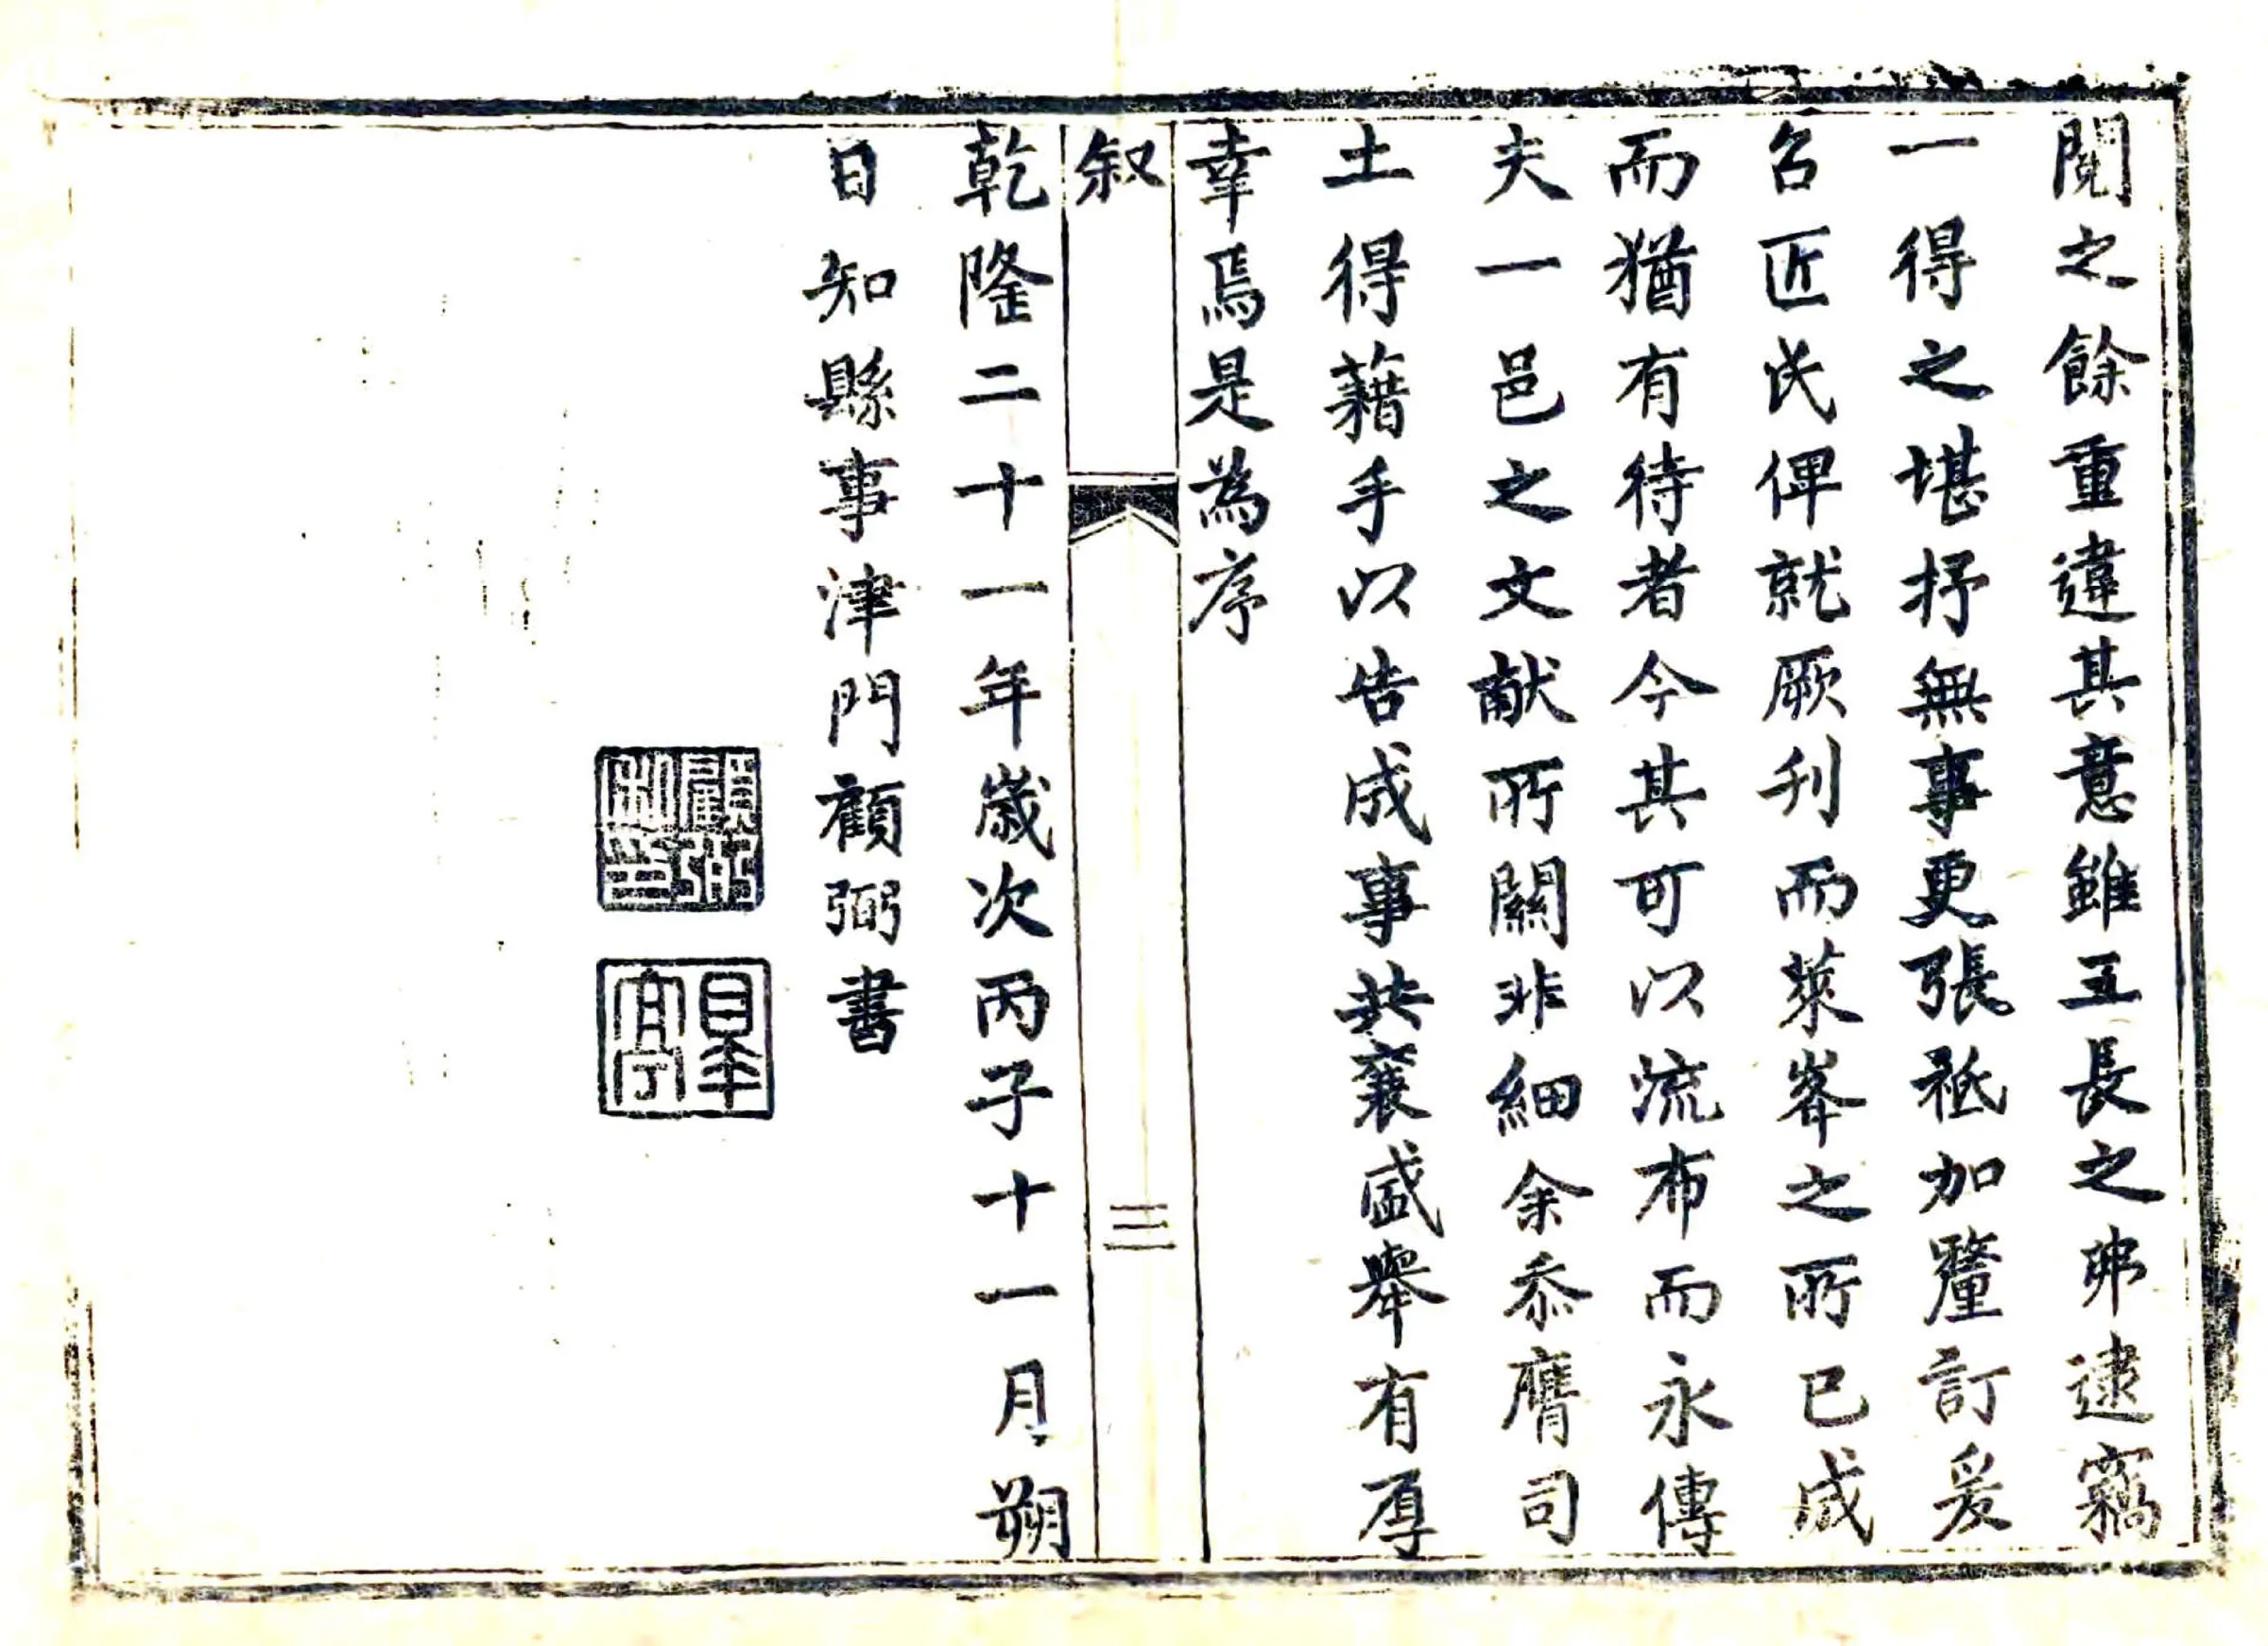 閱之餘重違其意雖五長之弗逮竊
一得之堪抒無事更張祗加釐訂爰
召匠氏俾就厥刊而萊峯之所已成
而猶有待者今其可以流布而永傳
夫一邑之文献所關非細余忝膺司
土得藉手以告成事共襄盛舉有厚
幸焉是為序
叙
三
乾隆二十一年歲次丙子十一月朔
日知縣事津門顧弼書
顧弼私印